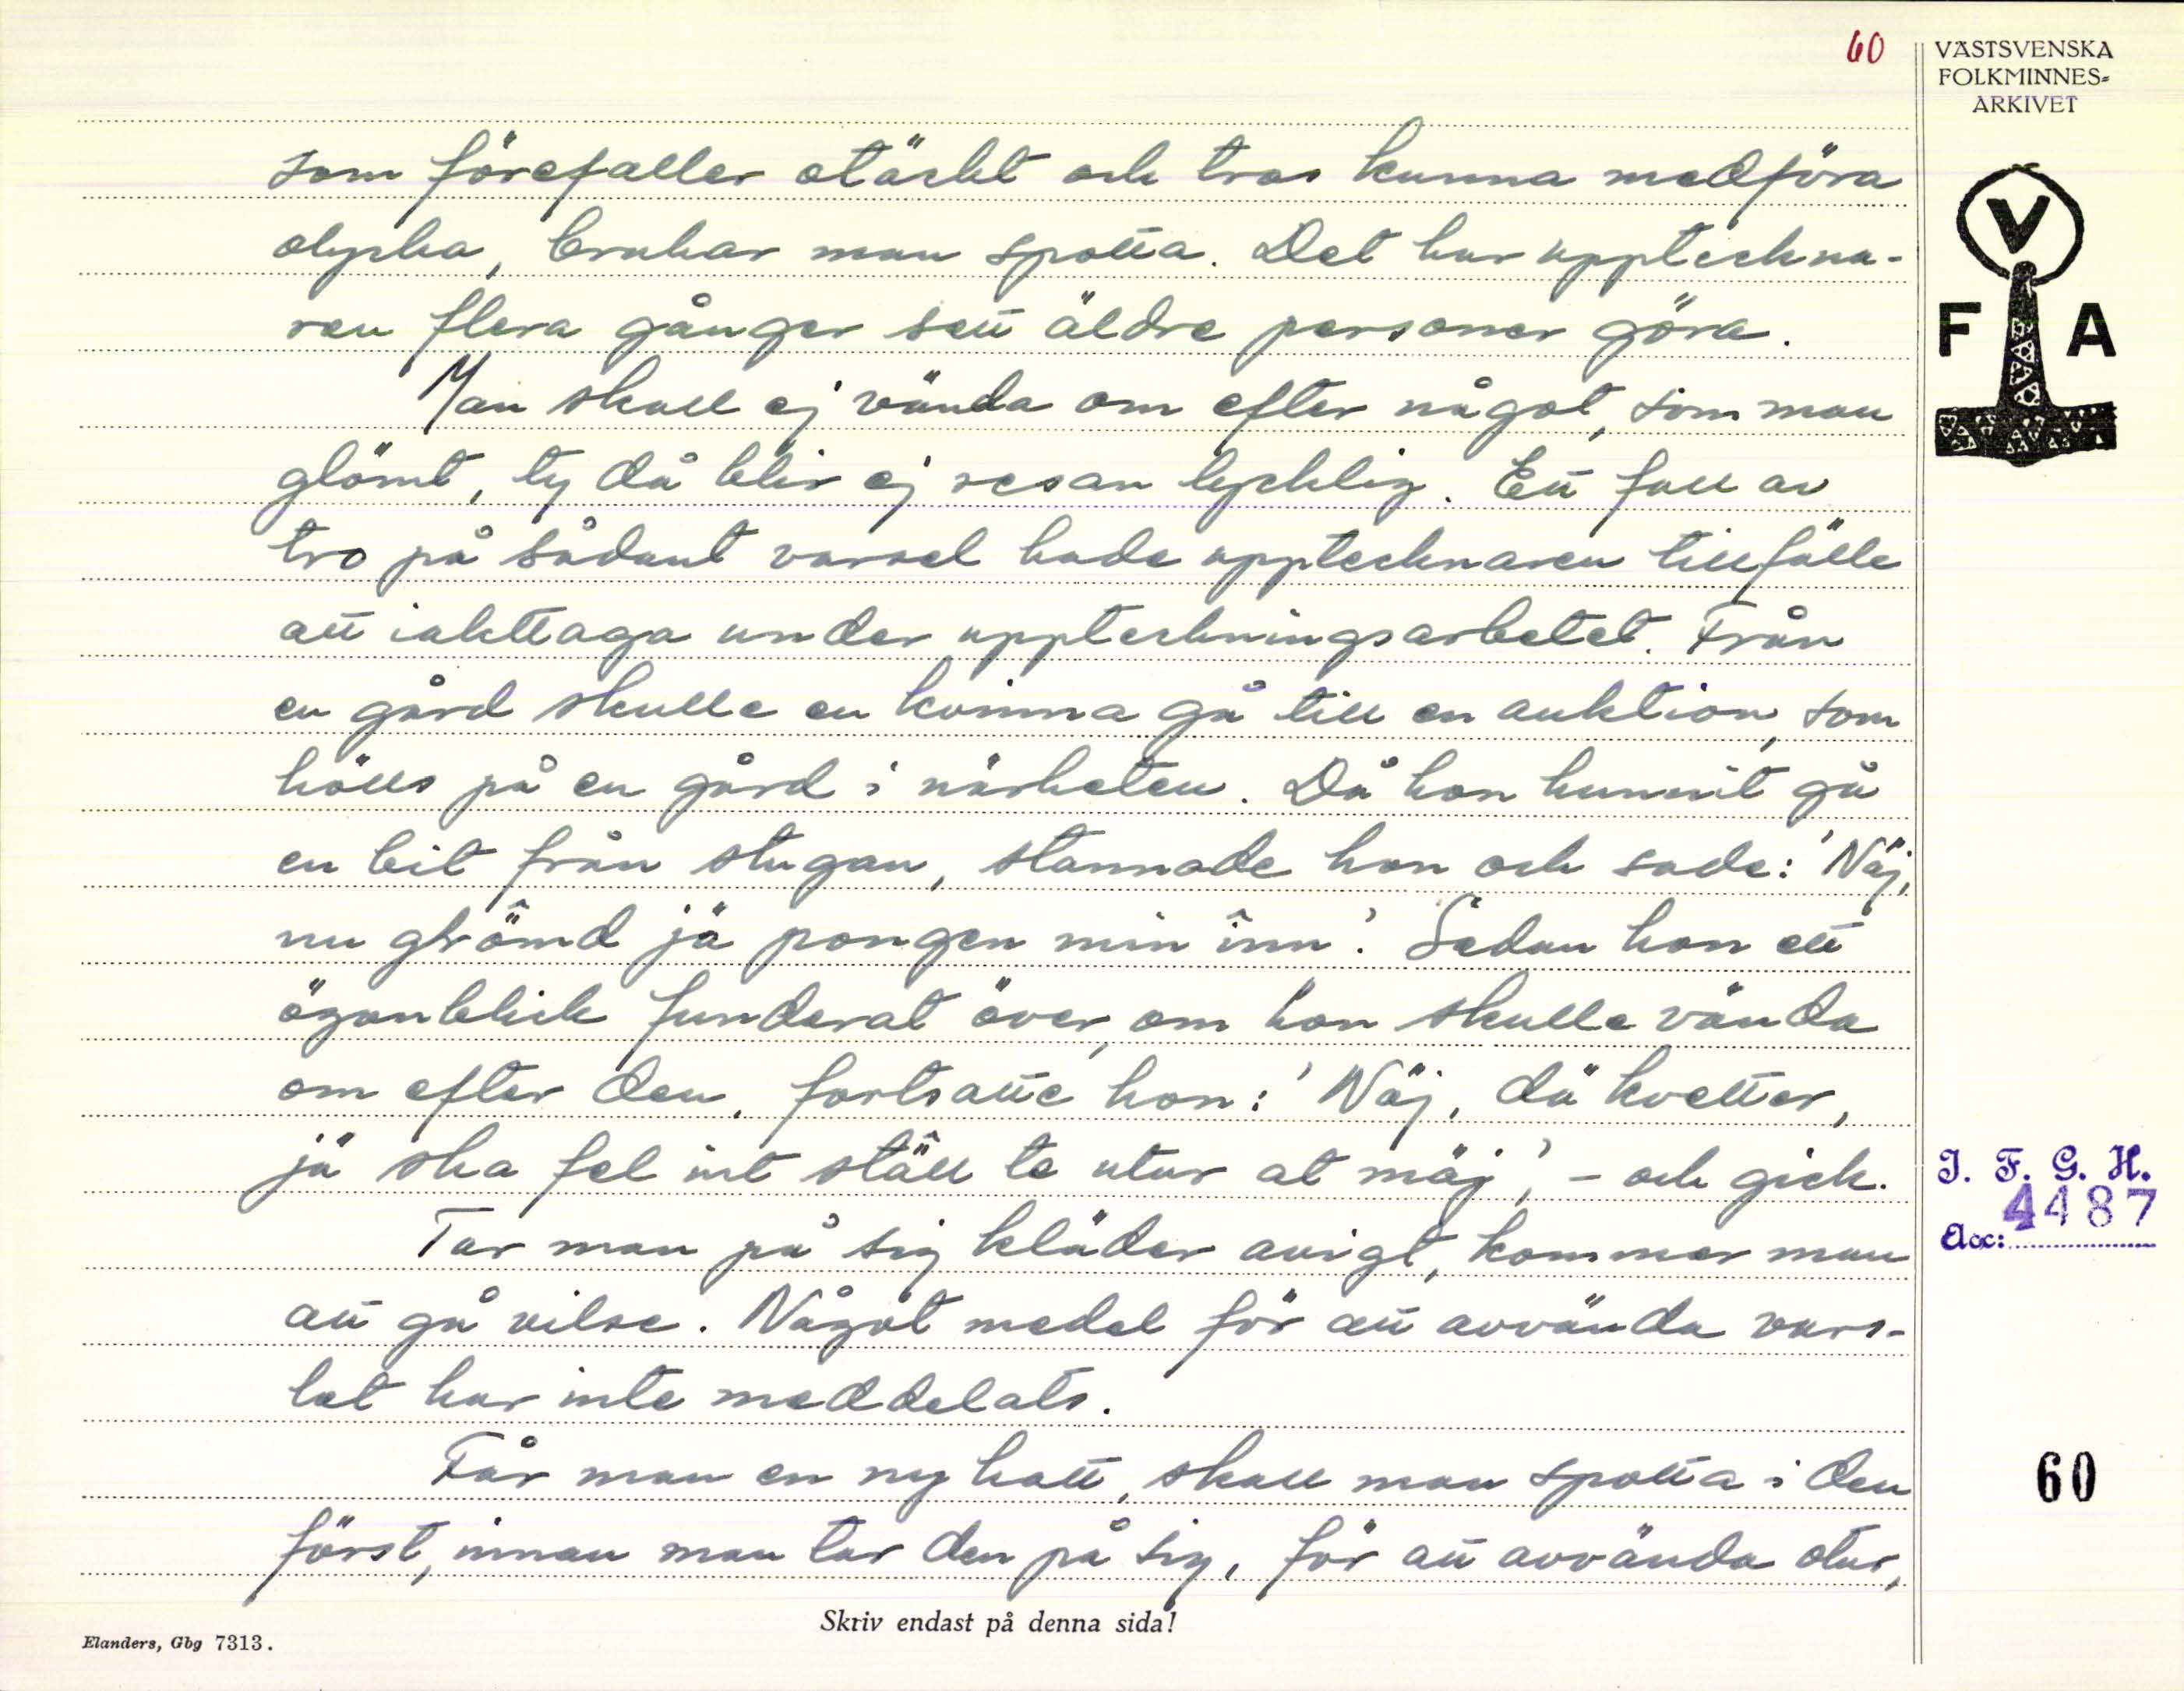 60
VÄSTSVENSKA
FOLKMINNES=
ARKIVET
V
F A
som förefaller otäckt och tros kunna medföra
olycka, brukar man spotta. Det har uppteckna-
ren flera gånger sett äldre personer göra.
Man skall ej vända om efter något, som man
glömt, ty då blir ej resan lycklig. Ett fall av
tro på sådant varsel hade upptecknaren tillfälle
att iakttaga under uppteckningsarbetet. Från
en gård skulle en kvinna gå till en auktion, som
hölls på en gård i närheten. Då hon hunnit gå
en bit från stugan, stannade hon och sade: 'Näj,
nu glömd jä pongen min inn'. Sedan hon ett
ögonblick funderat över, om hon skulle vända
om efter den, fortsatte hon: 'Näj, dä kvetter,
jä ska fel int ställ te utur at mäj', - och gick.
Tar man på sig kläder avigt, kommer man
att gå vilse. Något medel för att avvända vars-
let har inte meddelats.
Får man en ny hatt, skall man spotta i den
först, innan man tar den på sig, för att avvända otur,
I. F. G. H.
4487
Acc:
60
Skriv endast på denna sida!
Elanders, Gbg 7313.